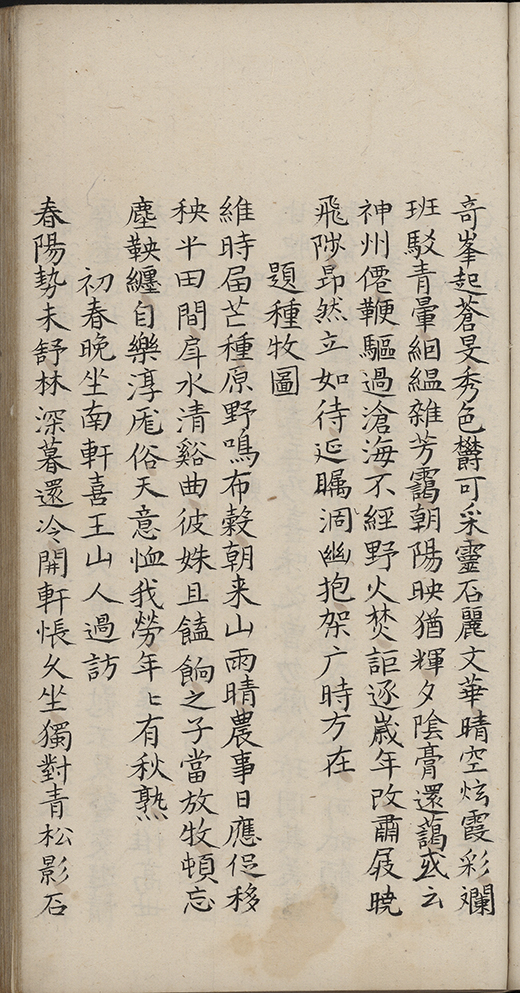 奇峯起蒼旻秀色欝可采靈石麗文華晴空炫霞彩斕
班駁青暈絪緼雜芳靄朝陽映猶輝夕陰膏還藹或云
神州僊鞭驅過滄海不經野火焚詎逐歲年改肅展曉
飛陟昂然立如待延矚洞幽抱架广時方在
題種牧圖
維時届芒種原野鳴布穀朝来山雨晴農事日應促移
秧半田間戽水清谿曲彼姝且饁餉之子當放牧頓忘
塵鞅纏自樂淳厖俗天意恤我勞年〻有秋熟
初春晚坐南軒喜王山人過訪
春陽勢未舒林深暮還冷開軒悵久坐獨對青松影石